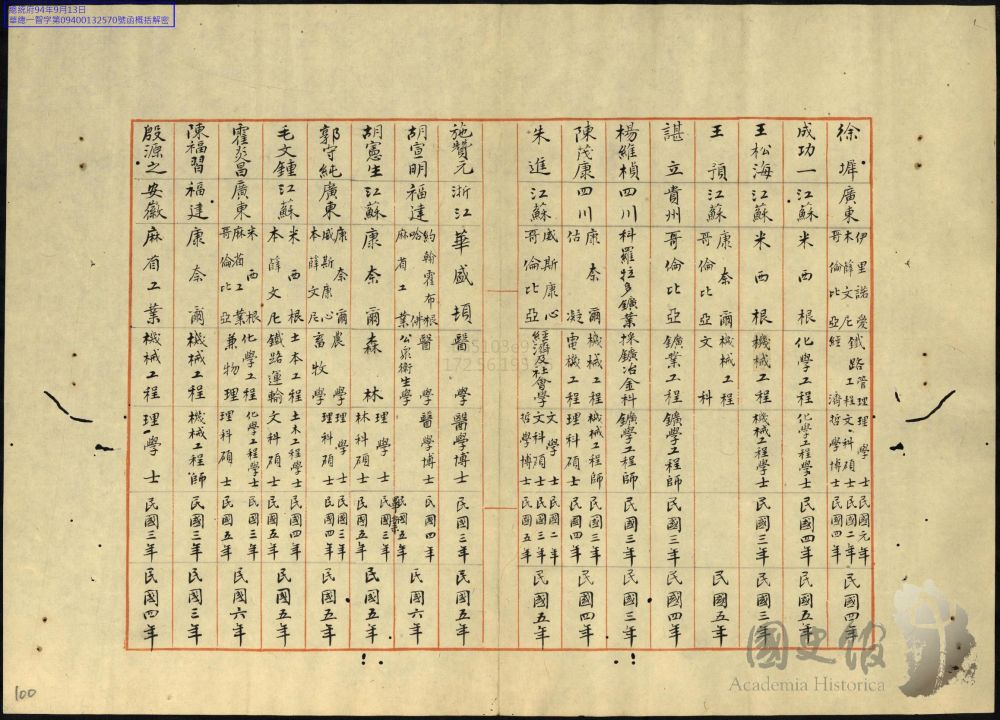 總統府94年9月13日
華總一智字第09400132570號函概括解密
徐墀 廣東 伊里諾愛 米薛文尼 哥倫比亞 鐵路管理 鐵路工程 經濟 理學士 文科碩士 哲學博士 民國元年 民國二年 民國四年 民國四年
成功一 江蘇 米西根 化學工程 化學工程學士 民國四年 民國五年
王松海 江蘇 米西根 機械工程 機械工程學士 民國三年 民國三年
王預 江蘇 康奈爾 哥倫比亞 機械工程 文科 民國五年
諶立 貴州 哥倫比亞 鑛業工程 鑛學工程師 民國三年 民國四年
楊維楨 四川 科羅拉多鑛業 採鑛冶金科 鑛學工程師 民國三年 民國三年
陳茂康 四川 康奈爾 佑凝 機械工程 電機工程 機械工程師 理科碩士 民國三年 民國四年 民國四年
朱進 江蘇 威斯康心 哥倫比亞 經濟及社會學 文學士 文科碩士 哲學博士 民國二年 民國三年 民國五年 民國五年
施贊元 浙江 華盛頓 醫學 醫學博士 民國三年 民國五年
胡宣明 福建 約翰霍布根 哈佛 麻省工業 醫學 公衆衛生學 醫學博士 民國四年 民國五年 民國六年
胡憲生 江蘇 康奈爾 森林 理學士 林科碩士 民國三年 民國五年
郭守純 廣東 康奈爾 威斯康心 本薛文尼 農學 畜牧學 理學士 理科碩士 民國三年 民國四年 民國五年
毛文鍾 江蘇 米西根 本薛文尼 土木工程 鐵路運輸 土木工程學士 文科碩士 民國四年 民國五年 民國五年
霍炎昌 廣東 米西根 麻省工業 哥倫比亞 化學工程 兼物理 化學工程學士 理科碩士 民國三年 民國五年 民國六年
陳福習 福建 康奈爾 機械工程 機械工程師 民國三年 民國三年
殷源之 安徽 麻省工業 機械工程 理學士 民國三年 民國四年
100
國史館
Academia Historica